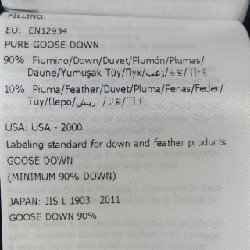 FILLING:
EU: EN12934
PURE GOOSE DOWN
90% Piumino/Down/Duvet/Plumón/Plumas/
Daune/Yumuşak Tüy/Пух/زغب/솜털/羽毛
10% Piuma/Feather/Duvet/Pluma/Penas/Feder/
Tüy/Перо/ريش/
USA: USA - 2000
Labeling standard for down and feather products
GOOSE DOWN
(MINIMUM 90% DOWN)
JAPAN: JIS L 1903 - 2011
GOOSE DOWN 90%